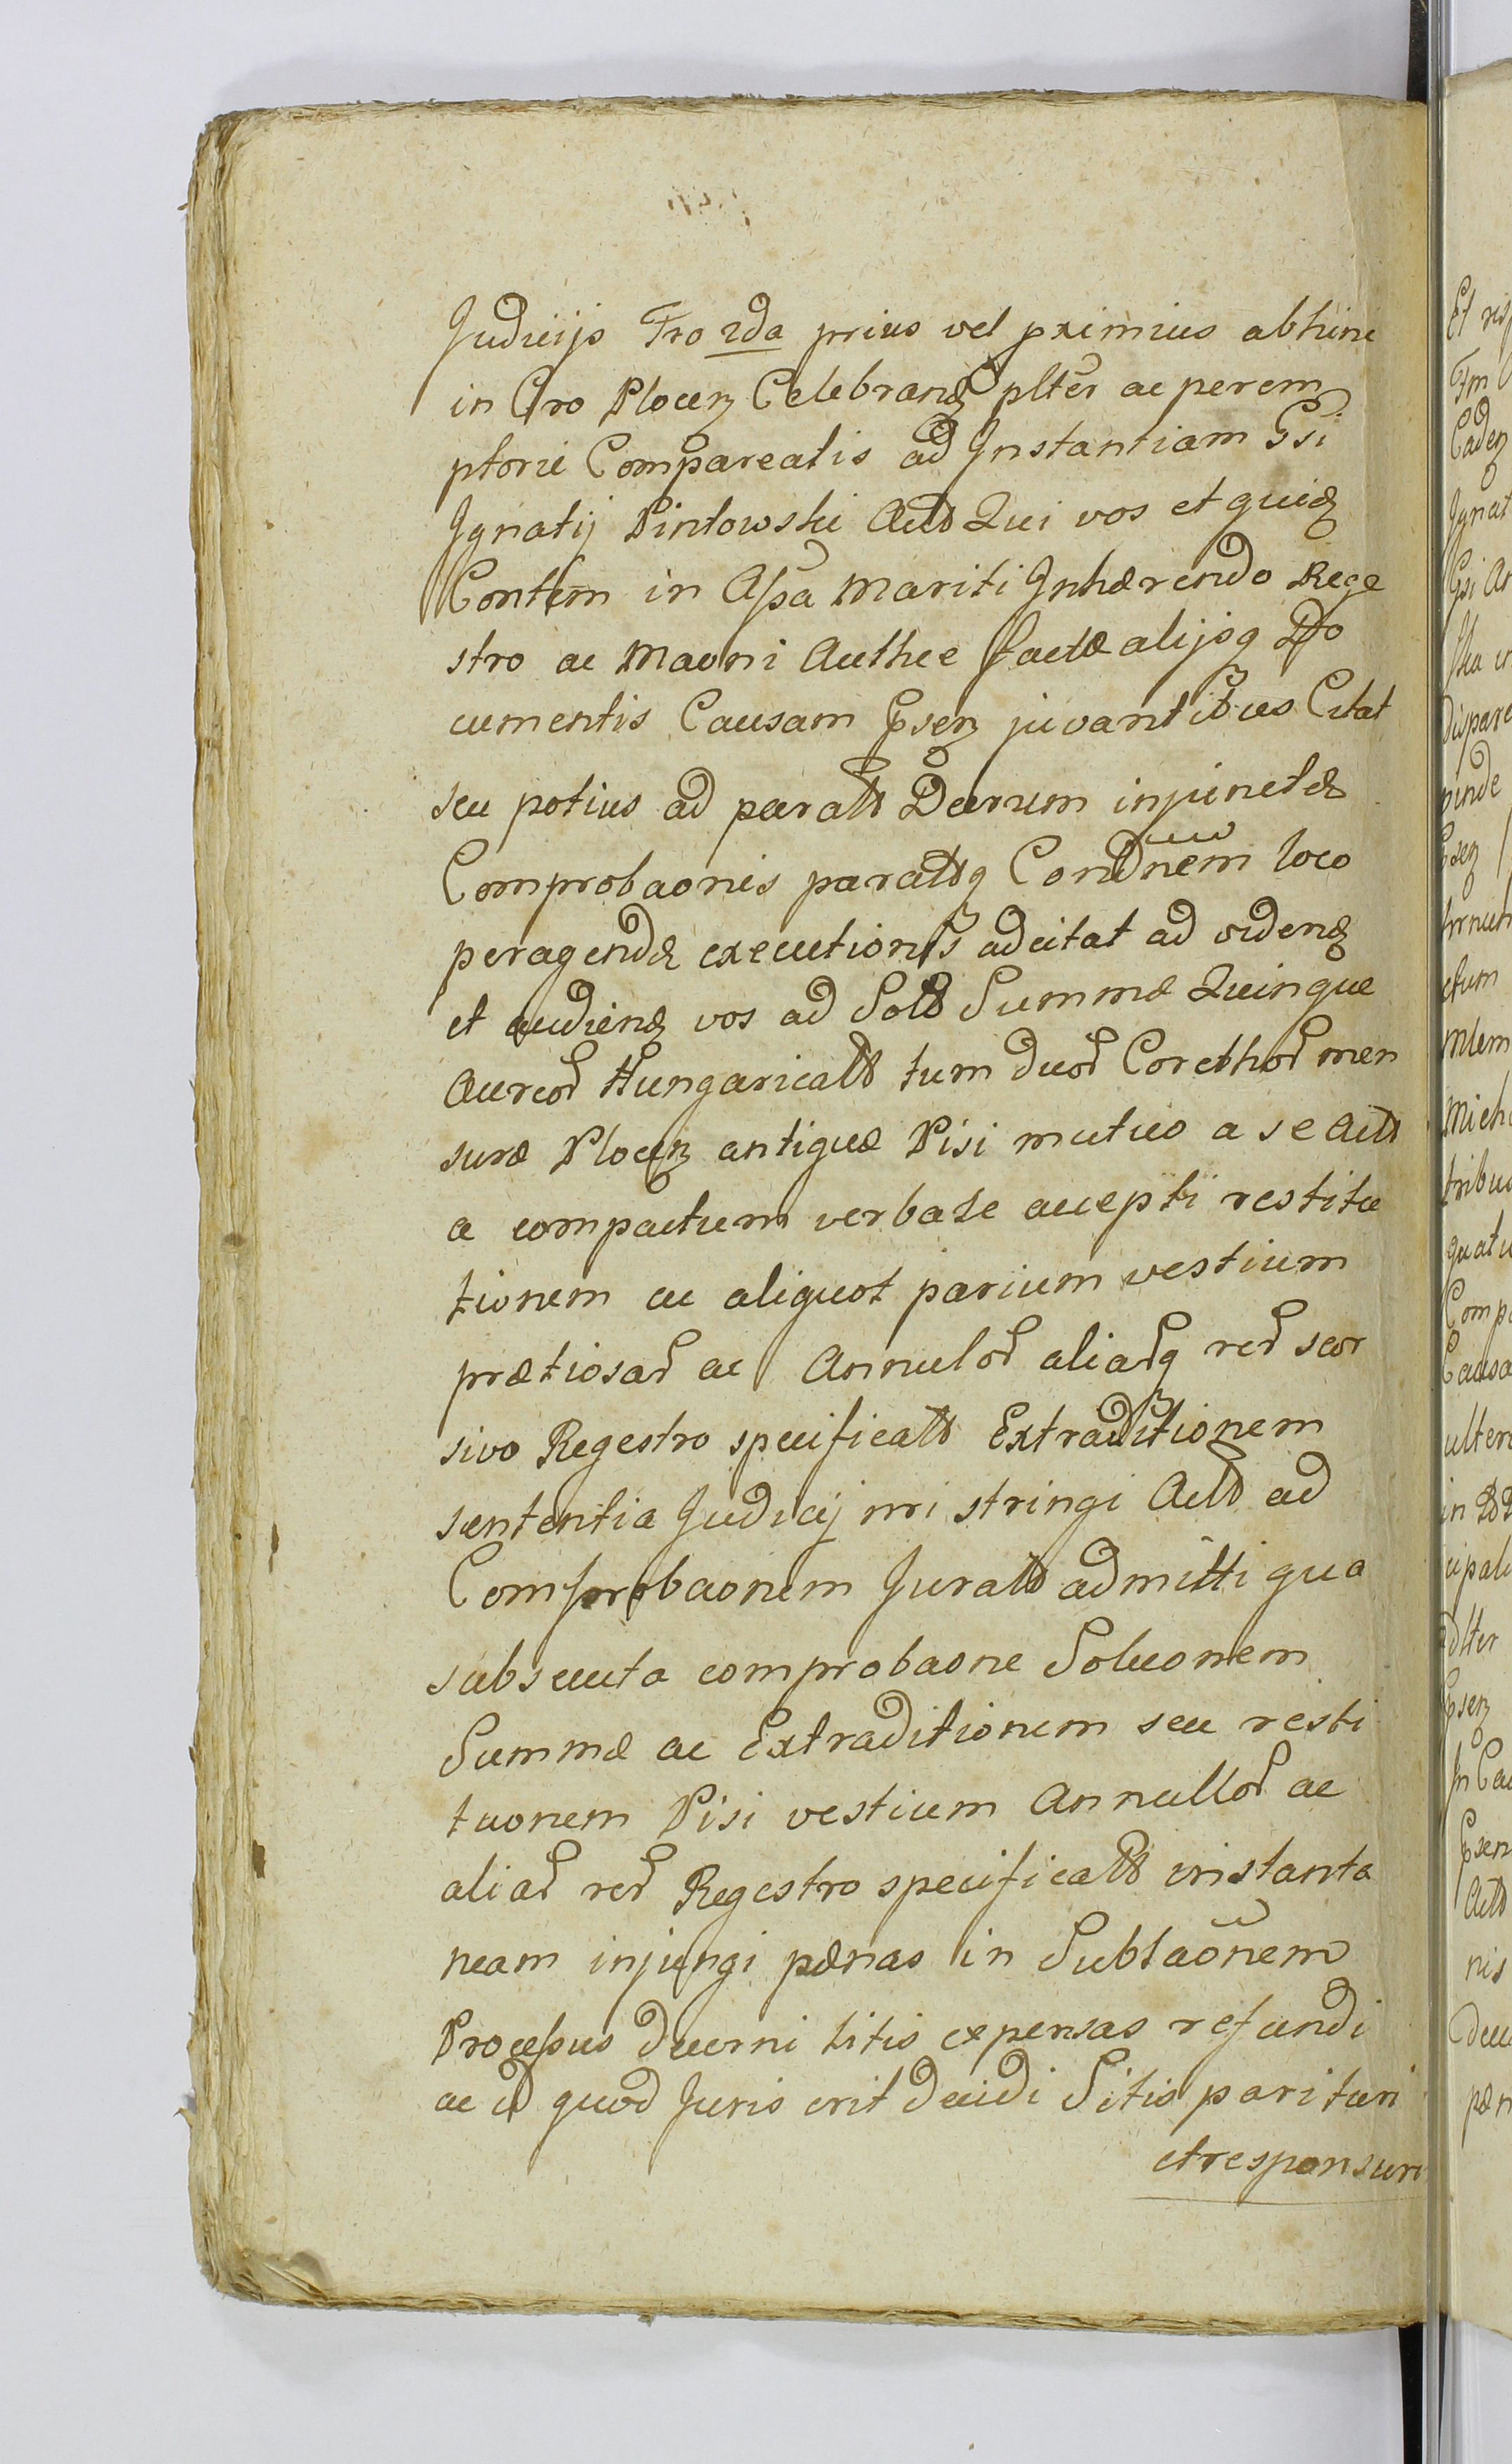 Judicijs Fro 2da prius vel pximius abhinc
in Cro Plocen Celebrand plter ac perem
ptorie Compareatis ad Instantiam Gsi
Ignatij Pinlowski Act Qui vos et quid
Contem in Assa Mariti Inhærendo Rege
stro ac Maoni Authce factæ alijsq Do
cumentis Causam Gsen juvantibus Citat
seu potius ad parat Decrum injunctæ
Comprobaonis paratq Condnem loco
peragendæ executionis adcitat ad vidend
et audiend vos ad Sol Summæ Quinque
Aureor Hungarical tum duor Corethor men
suræ Plocen antiquæ Pisi mutuo a se Act
a compactum verbale accepti restitu
tionem ac aliquot parium vestium
prætiosar ac Annulor aliarq rer seor
sivo Regestro specificat Extraditionem
sententia Judicij nri stringi Act ad
Comprobaonem Jurat admitti qua
subsecuta comprobaone Soluonem
Summæ ac Extraditionem seu resti
tuonem Pisi vestium Annullor ac
aliar rer Regestro specificat instanta
neam injungi pænas in Sublaonem
Processus decerni litis expensas refundi
ac id quod Juris erit decidi Sitis parituri
et responsuri